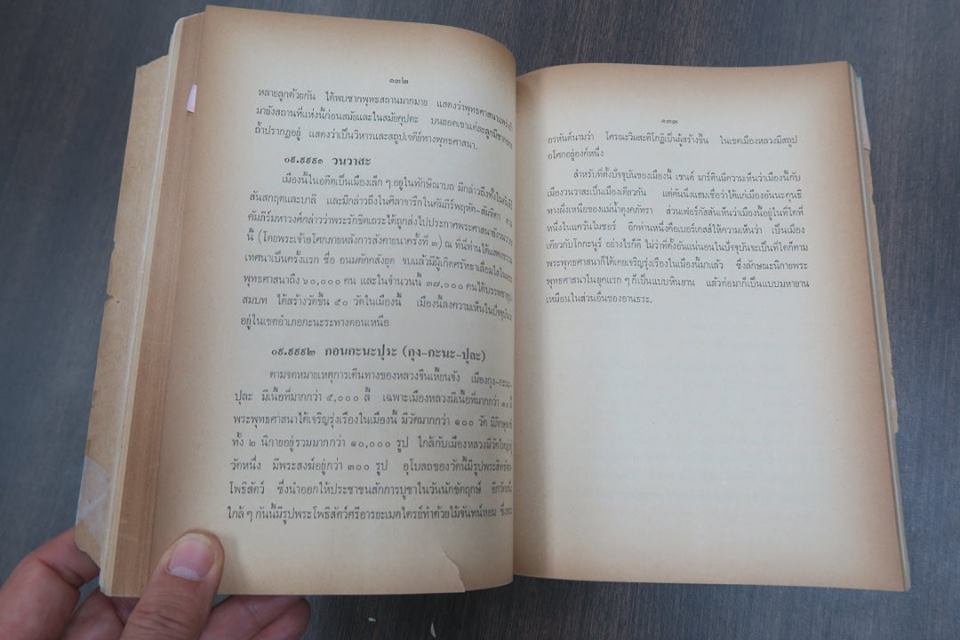 ๑๓๒
หลายลูกด้วยกัน ได้พบซากพุทธสถานมากมาย แสดงว่าพุทธศาสนาแพร่เข้า
มายังสถานที่แห่งนี้ก่อนสมัยและในสมัยคุปตะ บนยอดเขาแต่ละลูกมีซาก
ถ้ำปรากฏอยู่ แสดงว่าเป็นวิหารและสถูปเจดีย์ทางพุทธศาสนา.
วนวาสะ
เมืองนี้ในอดีตเป็นเมืองเล็ก ๆ อยู่ในทักษิณาบถ มีกล่าวถึงทั้งในคัมภีร์
สันสกฤตและบาลี และมีกล่าวถึงในศิลาจารึกในคัมภีร์พฤหัต-สัมหิตา
คัมภีร์มหาวงศ์กล่าวว่าพระรักขิตเถระได้ถูกส่งไปประกาศศาสนายังวนวาสะ
นี้ (โดยพระเจ้าอโศกภายหลังการสังคายนาครั้งที่ ๓) ณ ที่นี้ท่านได้แสดง
เทศนาเป็นครั้งแรก ชื่อ อนมตัคคสังยุต จบแล้วมีผู้เกิดศรัทธาเลื่อมใสใน
พุทธศาสนาถึง ๖๐,๐๐๐ คน และในจำนวนนี้ ๓๗,๐๐๐ คนได้บรรพชา
สมบท ได้สร้างวัดขึ้น ๕๐ วัดในเมืองนี้ เมืองนี้ลงความเห็นในปัจจุบัน
อยู่ในเขตอำเภอกะนะระทางตอนเหนือ
คอนกะนะปุระ (กุง-กะนะ-ปุละ)
ตามจดหมายเหตุการเดินทางของหลวงจีนเหี้ยนจัง เมืองกุง-กะนะ-
ปุละ มีเนื้อที่มากกว่า ๕,๐๐๐ ลี้ เฉพาะเมืองหลวงมีเนื้อที่มากกว่า ๓๐ ลี้
พระพุทธศาสนาได้เจริญรุ่งเรืองในเมืองนี้ มีวัดมากกว่า ๑๐๐ วัด มีภิกษุ
ทั้ง ๒ นิกายอยู่รวมมากกว่า ๑๐,๐๐๐ รูป ใกล้กับเมืองหลวงมีวัดใหญ่อยู่
วัดหนึ่ง มีพระสงฆ์อยู่กว่า ๓๐๐ รูป อุโบสถของวัดนี้มีรูปพระสิทธัตถ
โพธิสัตว์ ซึ่งนำออกให้ประชาชนสักการบูชาในวันนักขัตฤกษ์ อีกวัดหนึ่ง
ใกล้ ๆ กันนี้มีรูปพระโพธิสัตว์ศรีอารยะเมตไตรย์ทำด้วยไม้จันทน์หอม ซึ่ง
๑๓๓
อรหันต์นามว่า โศรณะวิมสะติโกฏิเป็นผู้สร้างขึ้น ในเขตเมืองหลวงมีสถูป
อโศกอยู่องค์หนึ่ง
สำหรับที่ตั้งปัจจุบันของเมืองนี้ เซนต์ มาร์ตินมีความเห็นว่าเมืองนี้กับ
เมืองวนวาสะเป็นเมืองเดียวกัน แต่คันนิ่งแฮมเชื่อว่าได้แก่เมืองอันนะคุนธิ
ทางฝั่งเหนือของแม่น้ำตุงคภัทรา ส่วนเฟอร์กัสสันเห็นว่าเมืองนี้อยู่ในที่ใดที่
หนึ่งในแคว้นไมซอร์ อีกท่านหนึ่งคือเบอร์เกสส์ให้ความเห็นว่า เป็นเมือง
เดียวกับโกกะนูร์ อย่างไรก็ดี ไม่ว่าที่ตั้งอันแน่นอนในปัจจุบันจะเป็นที่ใดก็ตาม
พระพุทธศาสนาก็ได้เคยเจริญรุ่งเรืองในเมืองนี้มาแล้ว ซึ่งลักษณะนิกายพระ
พุทธศาสนาในยุคแรก ๆ ก็เป็นแบบหินยาน แล้วต่อมาก็เป็นแบบมหายาน
เหมือนในส่วนอื่นของอานธระ.